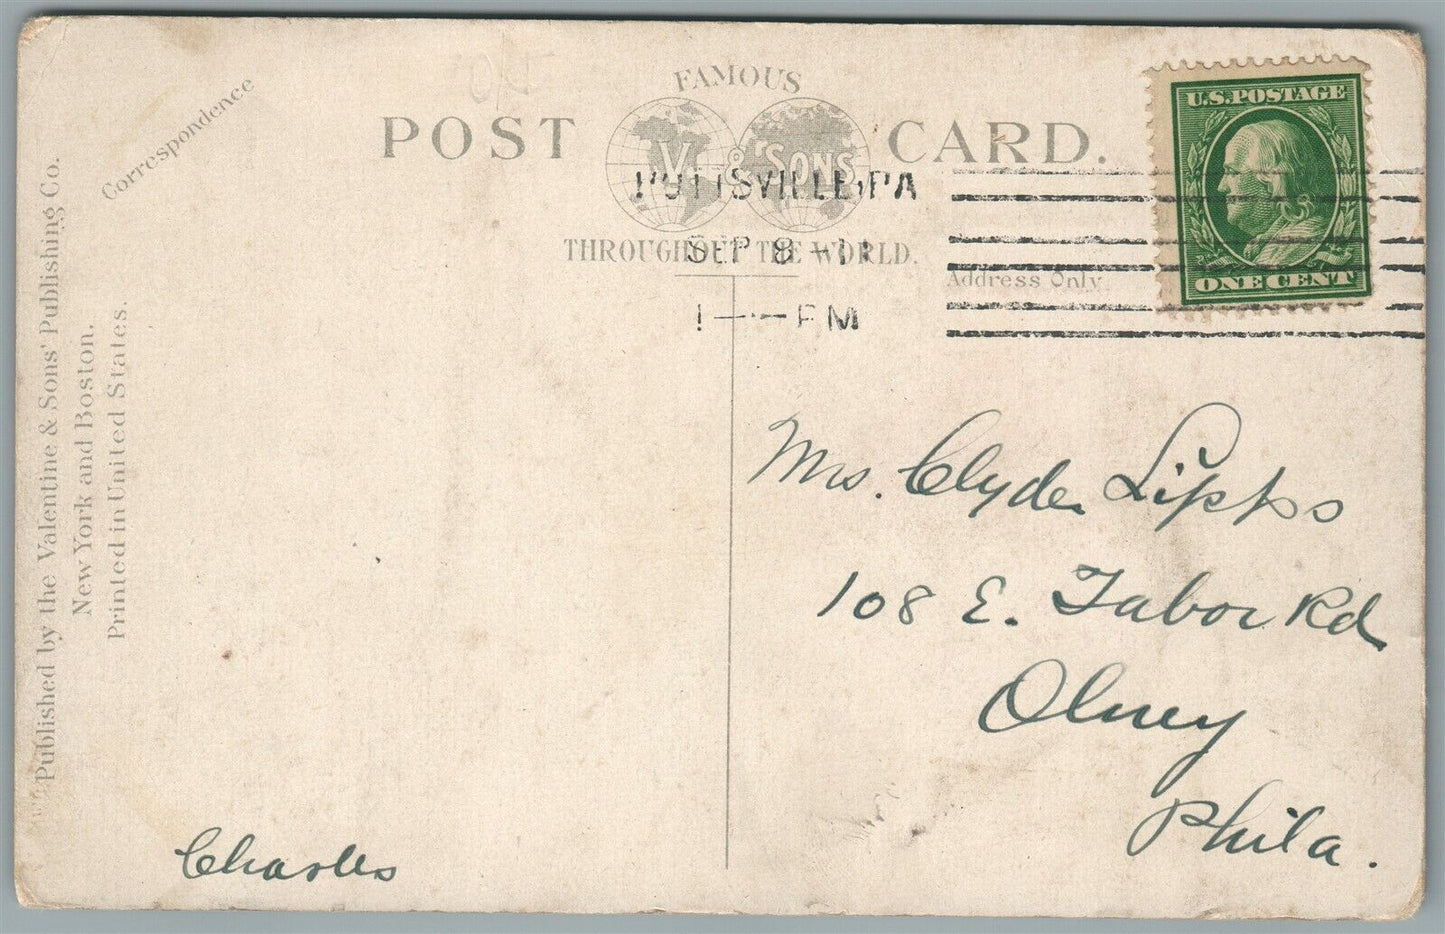 Correspondence
POST CARD.
FAMOUS
V. & SONS
THROUGHOUT THE WORLD.
POTTSVILLE, PA
SEP 8 - 11
1 - PM
U.S. POSTAGE
ONE CENT
Address Only.
Published by the Valentine & Sons' Publishing Co.
New York and Boston.
Printed in United States.
Mrs. Clyde Lipps
108 E. Tabor Rd
Olney
Phila.
Charles